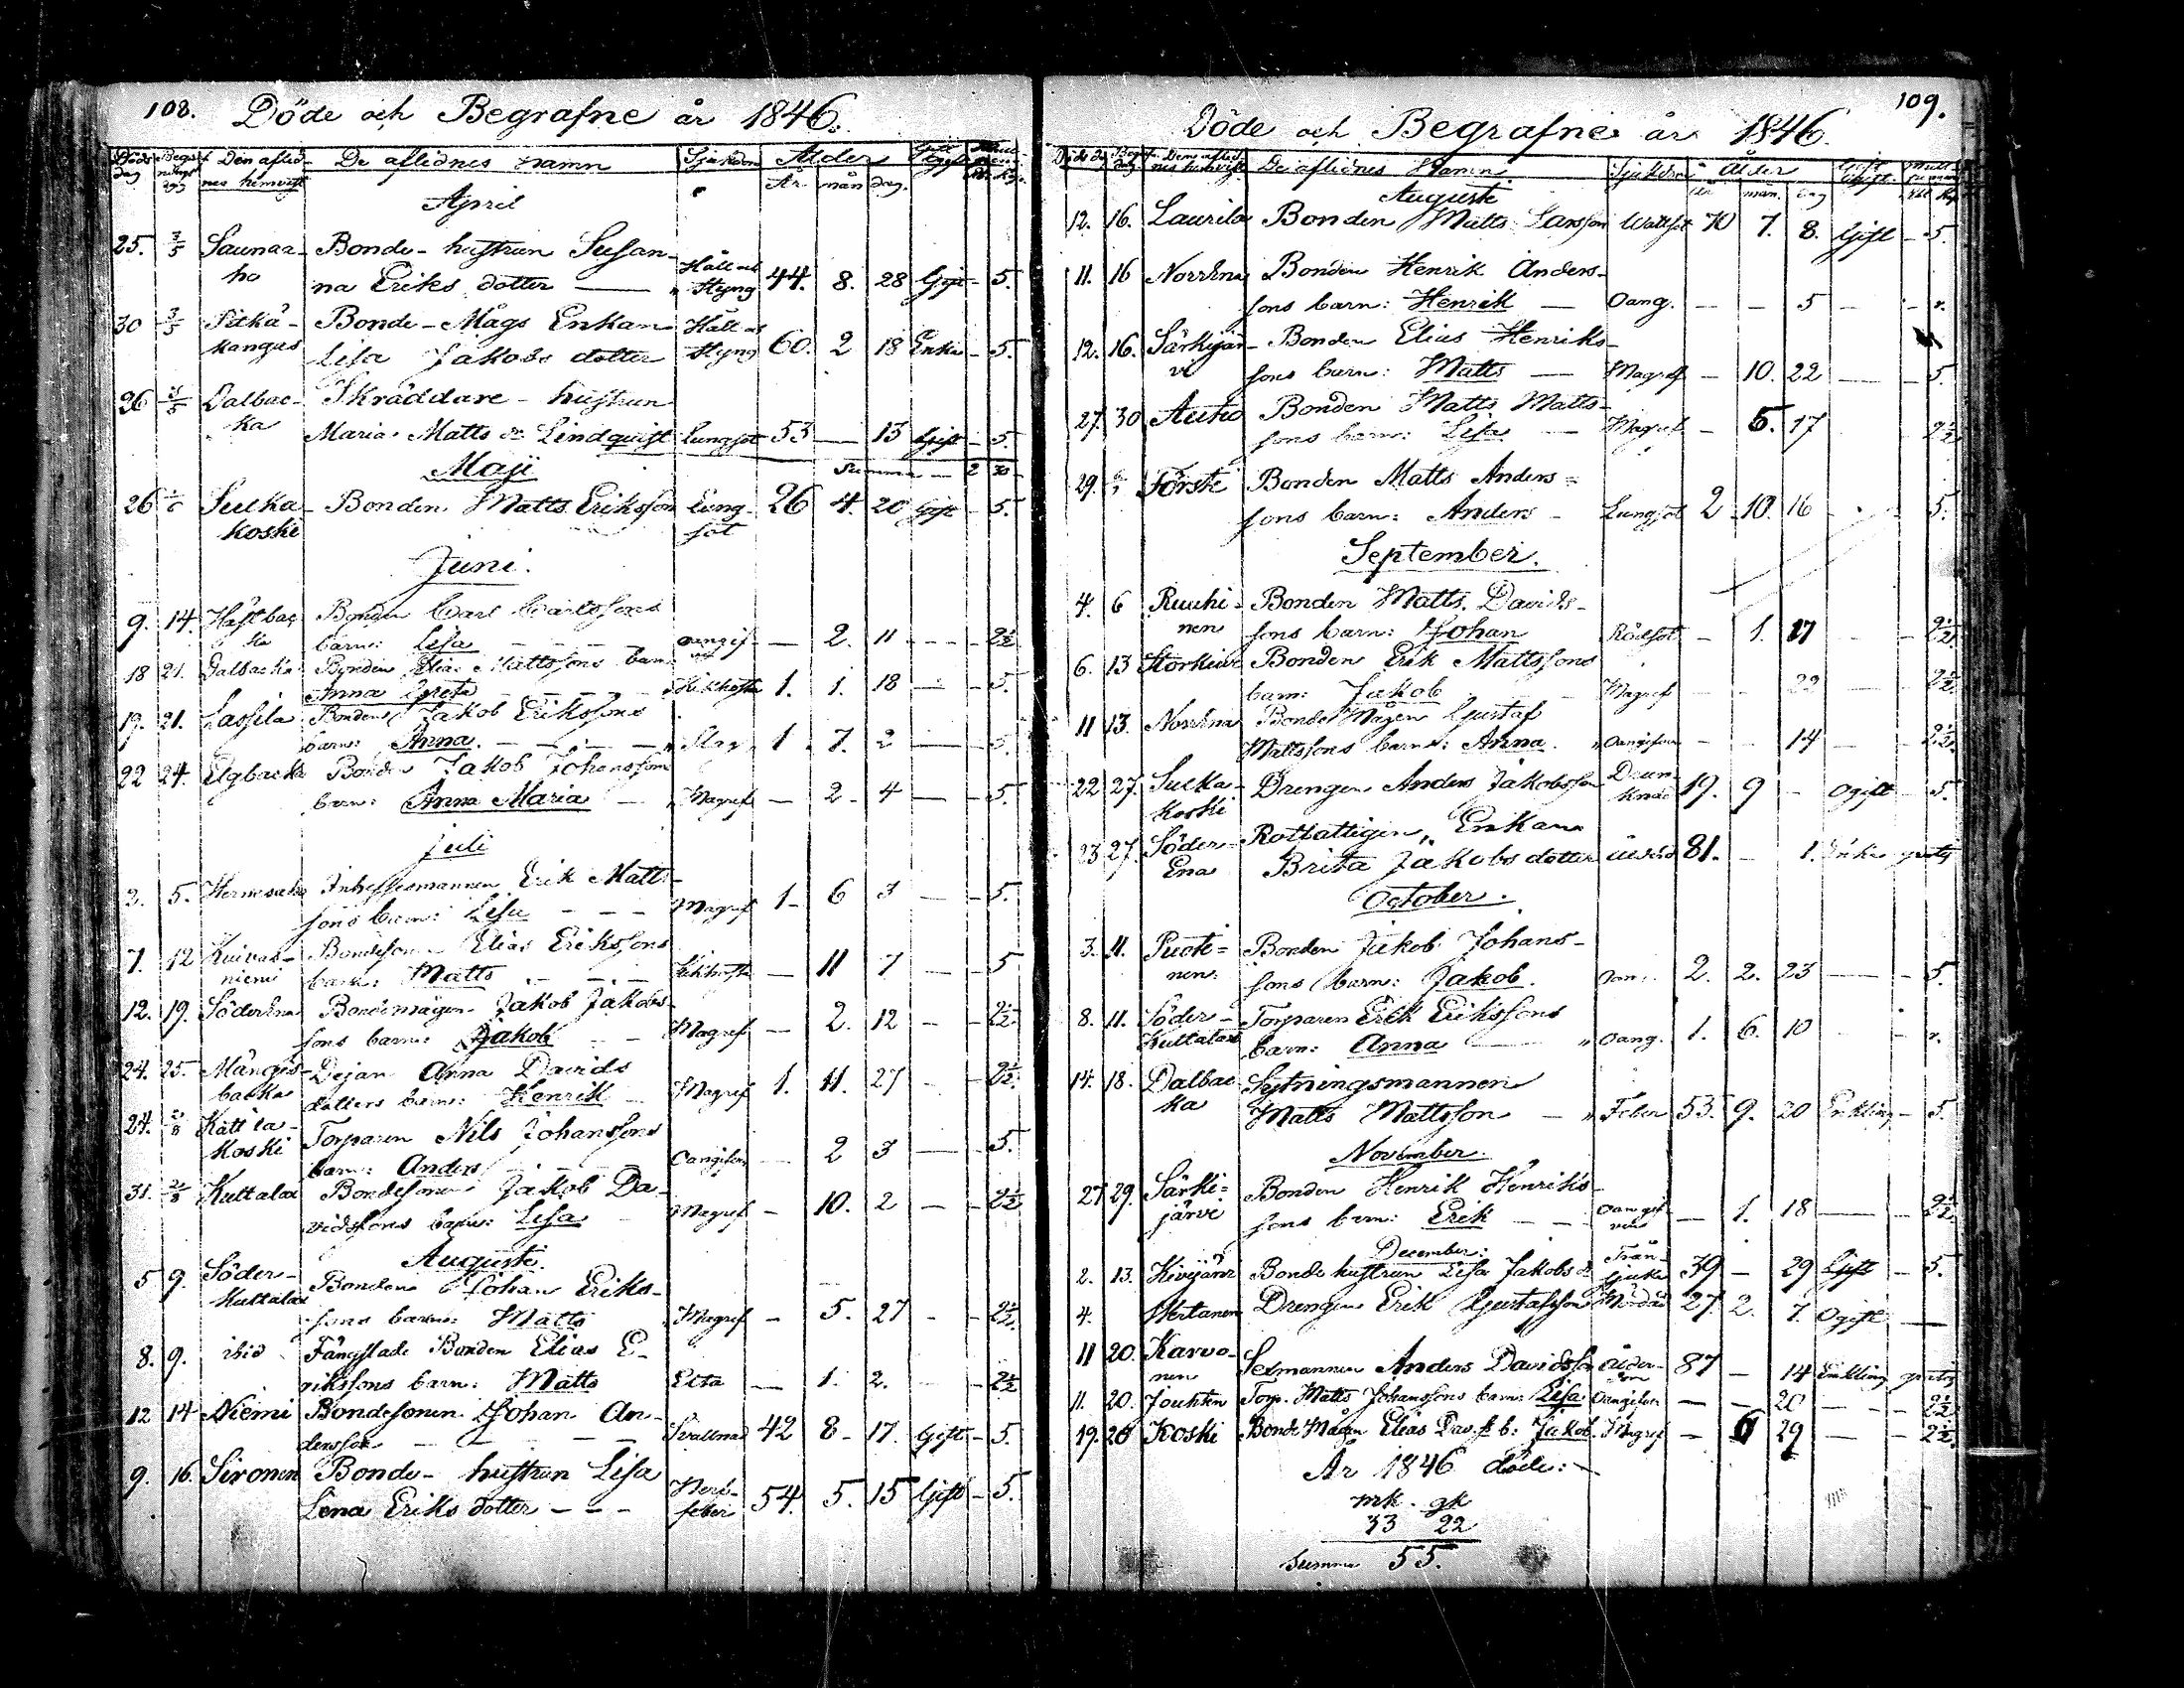 108. Döde och Begrafne år 1846.
Döds dag Begrafnings dag Den aflid- De aflidnes namn Sjukdom Ålder Gift Ogift
nes hemvist År mån dag.
April
25. 3/5 Saunaa- Bonde-hustrun Susan- Håll och
ho na Eriks dotter — Styng 44. 8. 28 Gift - 5.
30 3/5 Pitkä- Bonde-Mågs Enkan Håll och
kangas Lisa Jakobs dotter Styng 60. 2 18 Enka - 5.
26 3/5 Dalbac- Skräddare-hustrun
ka Maria Matts dr Lindquist Lungsot 53 — 13 Gift - 5.
Maji Summa — 2 30
26 Sucka- Bonden Matts Eriksson Lung- 26 4. 20 Gift - 5.
koski sot
Juni.
9. 14. Hästbac- Bonden Carl Carlssons
ka barn: Lisa — — — oangif- — 2. 11 - - - 2½
18 21. Dalbacka Bonden Elias Mattssons barn
Anna Greta — — — Kikhosta 1. 1. 18 — - 5.
19. 21. Lassila Bonden Jakob Erikssons
barn: Anna. — — — Slag 1. 7. 2 — - 5.
22 24. Elgbacka Bonden Jakob Johanssons
barn: Anna Maria — Magref — 2 - 4 — 5.
Juli
2. 5. Hernesaho Inhysesmannen Erik Matts-
sons barn: Lisa — — — Magref 1 - 6 3 — - 5.
7. 12 Kuivas- Bondesonen Elias Erikssons
niemi barn: Matts — — — Kikhosta — 11 7 — - 5
12. 19. SöderEna Bondemågen Jakob Jakobs-
sons barn: Jakob — — Magref — 2. 12 — - 2½.
24. 25. Mångis- Pejan Anna Davids
backa dotters barn: Henrik Magref 1. 11. 27 — - 2½.
24. Kattila- Torparen Nils Johanssons
koski barn: Anders — — — Oangifven — 2 3 — - 5.
31. Kuttalax Bondesonen Jakob Da-
vidssons barn: Lisa Magref - 10. 2 — - 2½
Augusti.
5 9. Söder- Bonden Johan Eriks-
Kuttalax sons barn: Matts Magref - 5. 27 - - 2½.
8. 9. ibid Fängslade Bonden Elias E-
rikssons barn: Matts Elta — 1. 2. — - 2½
12 14 Niemi Bondesonen Johan An-
dersson — — — — Svallnad 42 8 - 17. Gift - 5.
9. 16. Sironen Bonde-hustrun Lisa Nerf-
Lena Eriks dotter — — — feber 54. 5. 15 Gift - 5.
109.
Döde och Begrafne år 1846.
Döds dag Begr. dag Den aflid- De aflidnes Namn Sjukdom Ålder Gift
nes hemvist År mån. dag Ogift.
Augusti
12. 16. Laurila Bonden Matts Larsson Wattsot 70 7. 8. Gift - 5.
11. 16 NorrEna Bonden Henrik Anders-
sons barn: Henrik — Oang. — — 5 — - r.
12. 16. Särkijär- Bonden Elias Henriks-
vi sons barn: Matts — Magref — 10. 22 — - 5.
27. 30 Autio Bonden Matts Matts-
sons barn: Lisa — Magref — 5. 17 2½
29. Förste Bonden Matts Anders-
sons barn: Anders - Lungsot 2 10. 16 5.
September.
4. 6 Ruuhi- Bonden Matts Davids-
nen sons barn: Johan Rödsot - 1. 17 - - 2½
6. 13 Storkivi Bonden Erik Mattssons
barn: Jakob — Magref — — 22 — 2½
11 13. NorrEna Bonde Mågen Gustaf
Mattssons barn: Anna. Oangifven — — 14 — 2½.
22 27. Sucka- Drengen Anders Jakobsson Drun-
koski knad 19. 9 - Ogift - 5.
23 27. Söder- Rotfattigen, Enkan
Ena Brita Jakobs dotter 81. - 1. Enka gratis
October.
3. 11. Puoti- Bonden Jakob Johans-
nen. sons barn: Jakob. Oan. 2. 2. 23 — - 5.
8. 11. Söder- Torparen Erik Erikssons
Kuttalax barn: Anna — Oang. 1. 6. 10 - - r.
14. 18. Dalbac- Sytningsmannen
ka Matts Mattsson — Feber 53. 9. 20 Enkling - 5.
November.
27 29. Särki- Bonden Henrik Henriks-
järvi sons barn: Erik — — Oangif- ven — 1. 18 — 2½.
December:
2. 13. Kivijärvi Bonde hustrun Lisa Jakobs dr Trån- sjuka 39 — 29 Gift - 5.
4. Wertanen Drengen Erik Gustafsson Mördad 27. 2. 7. Ogift —
11 20. Karvo- Sexmannen Anders Davidsson Ålder- 87 — 14 Enkling gratis
nen dom
11. 20. Jouhten Torp. Matts Johanssons barn: Lisa Oangifven — — 20 — - 2½
19. 26 Koski Bonde Mågen Elias Dav.s. b: Jakob. Magref — 6 29 — - 2½.
År 1846 döde: —
mk. qk
33 22
Summa 55.